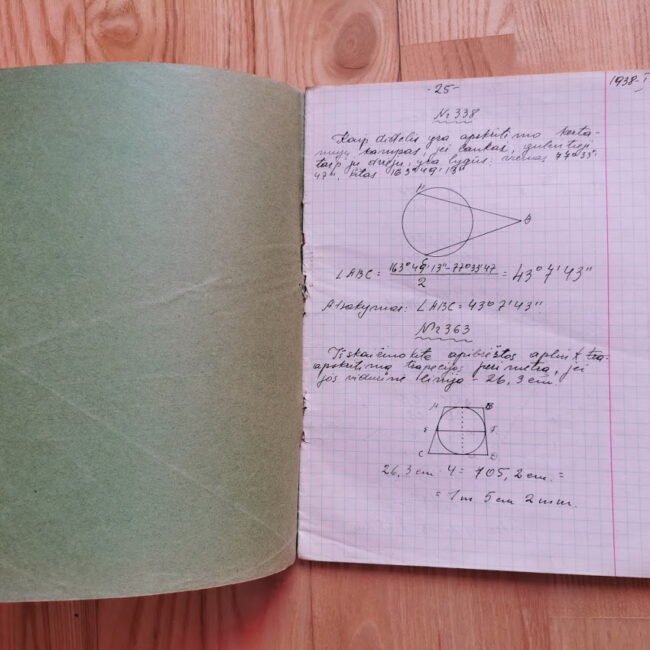 -25-
1938-I
№ 338
Kaip didelis yra apskritimo kerta-
mųjų kampas, jei lankai, gulintieji
tarp jų vidujų, yra lygūs: vienas 77°33'
47", kitas 163°49'13"
A
B
C
∠ABC = 163°49'13"-77°33'47 / 2 = 43°7'43"
Atsakymas: ∠ABC=43°7'43"
№ 363
Išskaičiuokite apibrėžtos aplink
apskritimą trapecijos perimetrą, jei
jos vidurinė linija - 26,3 cm.
A B
E F
C D
26,3 cm · 4 = 105,2 cm. =
= 1 m 5 cm 2 mm.